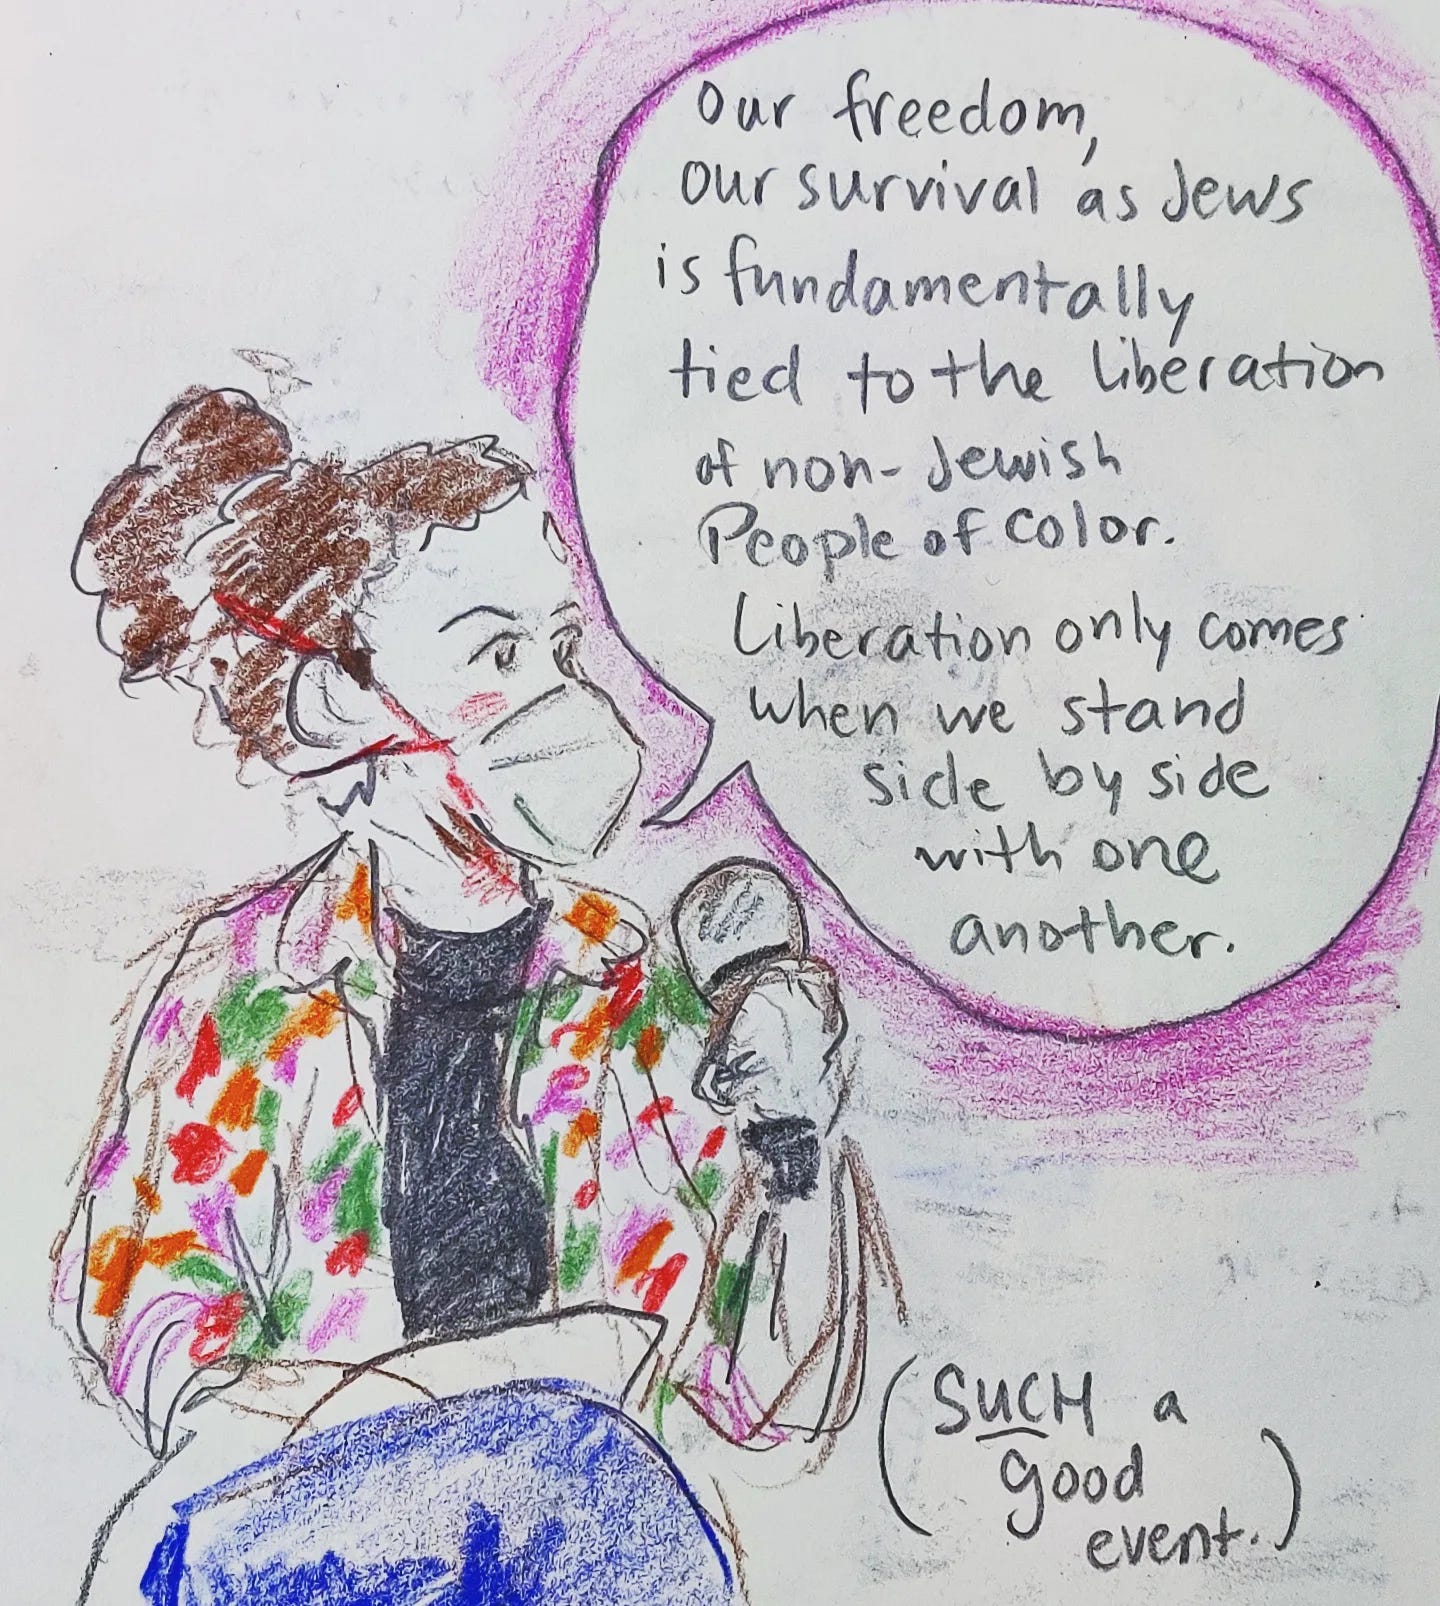 Our freedom,
our survival as Jews
is fundamentally
tied to the liberation
of non-Jewish
People of Color.
Liberation only comes
when we stand
side by side
with one
another.
(SUCH a
good
event.)